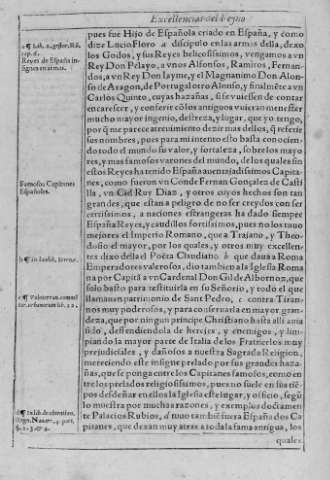 Excellencias del Reyno
pues fue Hijo de Española criado en España, y como
dize Lucio Floro a discipulo en las armas della, dexo
los Godos, y sus Reyes belicosissimos, vengamos a vn
Rey Don Pelayo, a vnos Alfonsos, Ramiros, Fernan-
dos, a vn Rey Don Iayme, y el Magnanimo Don Alon-
so de Aragon, de Portugal otro Alonso, y finalmẽte a vn
Carlos Quinto, cuyas hazañas, si se vuiessen de contar
encarescer, y conferir cõ los antiguos vuieran menester
mucho mayor ingenio, destreza, y lugar, que yo tengo,
por q̃ me parece atreuimiento dezir mas dellos, q̃ referir
sus nombres, pues para mi intento esto basta conocien-
do todo el mundo su valor, y fortaleza, sobre los mayo
res, y mas famosos varones del mundo, de los quales sin
estos Reyes ha tenido España auentajadissimos Capita-
nes, como fueron vn Conde Fernan Gonçales de Casti
lla, vn Cid Ruy Diaz, y otros cuyos hechos son tan
grandes, que estan a peligro de no ser creydos con ser
certissimos, a naciones estrangeras ha dado siempre
España Reyes, y caudillos fortissimos, pues no los tuuo
mejores el Imperio Romano, que a Trajano, y Theo-
dosio el mayor, por los quales, y otros muy excellen-
tes dixo della el Poëta Claudiano b que daua a Roma
Emperadores valerosos, dio tambien a la Iglesia Roma
na por Capitã a vn Cardenal Don Gil de Albornoz, que
solo basto para restituirla en su Señorio, y todo el que
llamauan patrimonio de Sant Pedro, c contra Tiran-
nos muy poderosos, y para conseruarla en mayor gran-
deza, que por ningun principe Christiano hasta alli auia
sido, deffendiendola de herejes, y enemigos, y lim-
piando la mayor parte de Italia de los Fratricelos muy
prejudiciales, y dañosos a nuestra Sagrada Religion,
mereciendo este insigne prelado por sus grandes haza-
ñas, que se ponga entre los Capitanes famosos, como en
tre los prelados religiosissimos, pues no suele en sus tiẽ-
pos desdeñar en ellos la Iglesia este lugar, y officio, segũ
lo muestra por muchas razones, y exemplos doctamen-
te Palacios Rubios, d tuuo tambien fuera España dos Ca
pitanes, que dexan muy atras a toda la fama antigua, los
quales
a ¶ Lib. 2. gestor. Rõ.
cap. 6.
Reyes de España in-
signes en armas.
Famosos Capitanes
Españoles.
b ¶ In laudib. Serenæ.